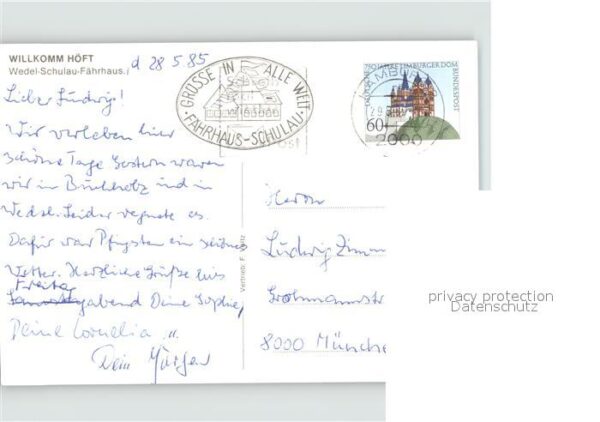 WILLKOMM HÖFT
Wedel-Schulau-Fährhaus.
d 28.5.85
GRÜSSE IN ALLE WELT
FÄHRHAUS-SCHULAU
750 JAHRE LIMBURGER DOM
DEUTSCHE BUNDESPOST
60
2000
Lieber Ludwig!
Wir verleben hier
schöne Tage. Gestern waren
wir in Buchholz und in
Wedel. Leider regnete es.
Dafür war Pfingsten ein schönes
Wetter. Herzliche Grüße bis
Freitag
abend Deine Sophie,
Deine Cornelia u.
Dein Jürgen
Vertrieb: F.
Herrn
Ludwig Zimm
8000 Münche
privacy protection
Datenschutz